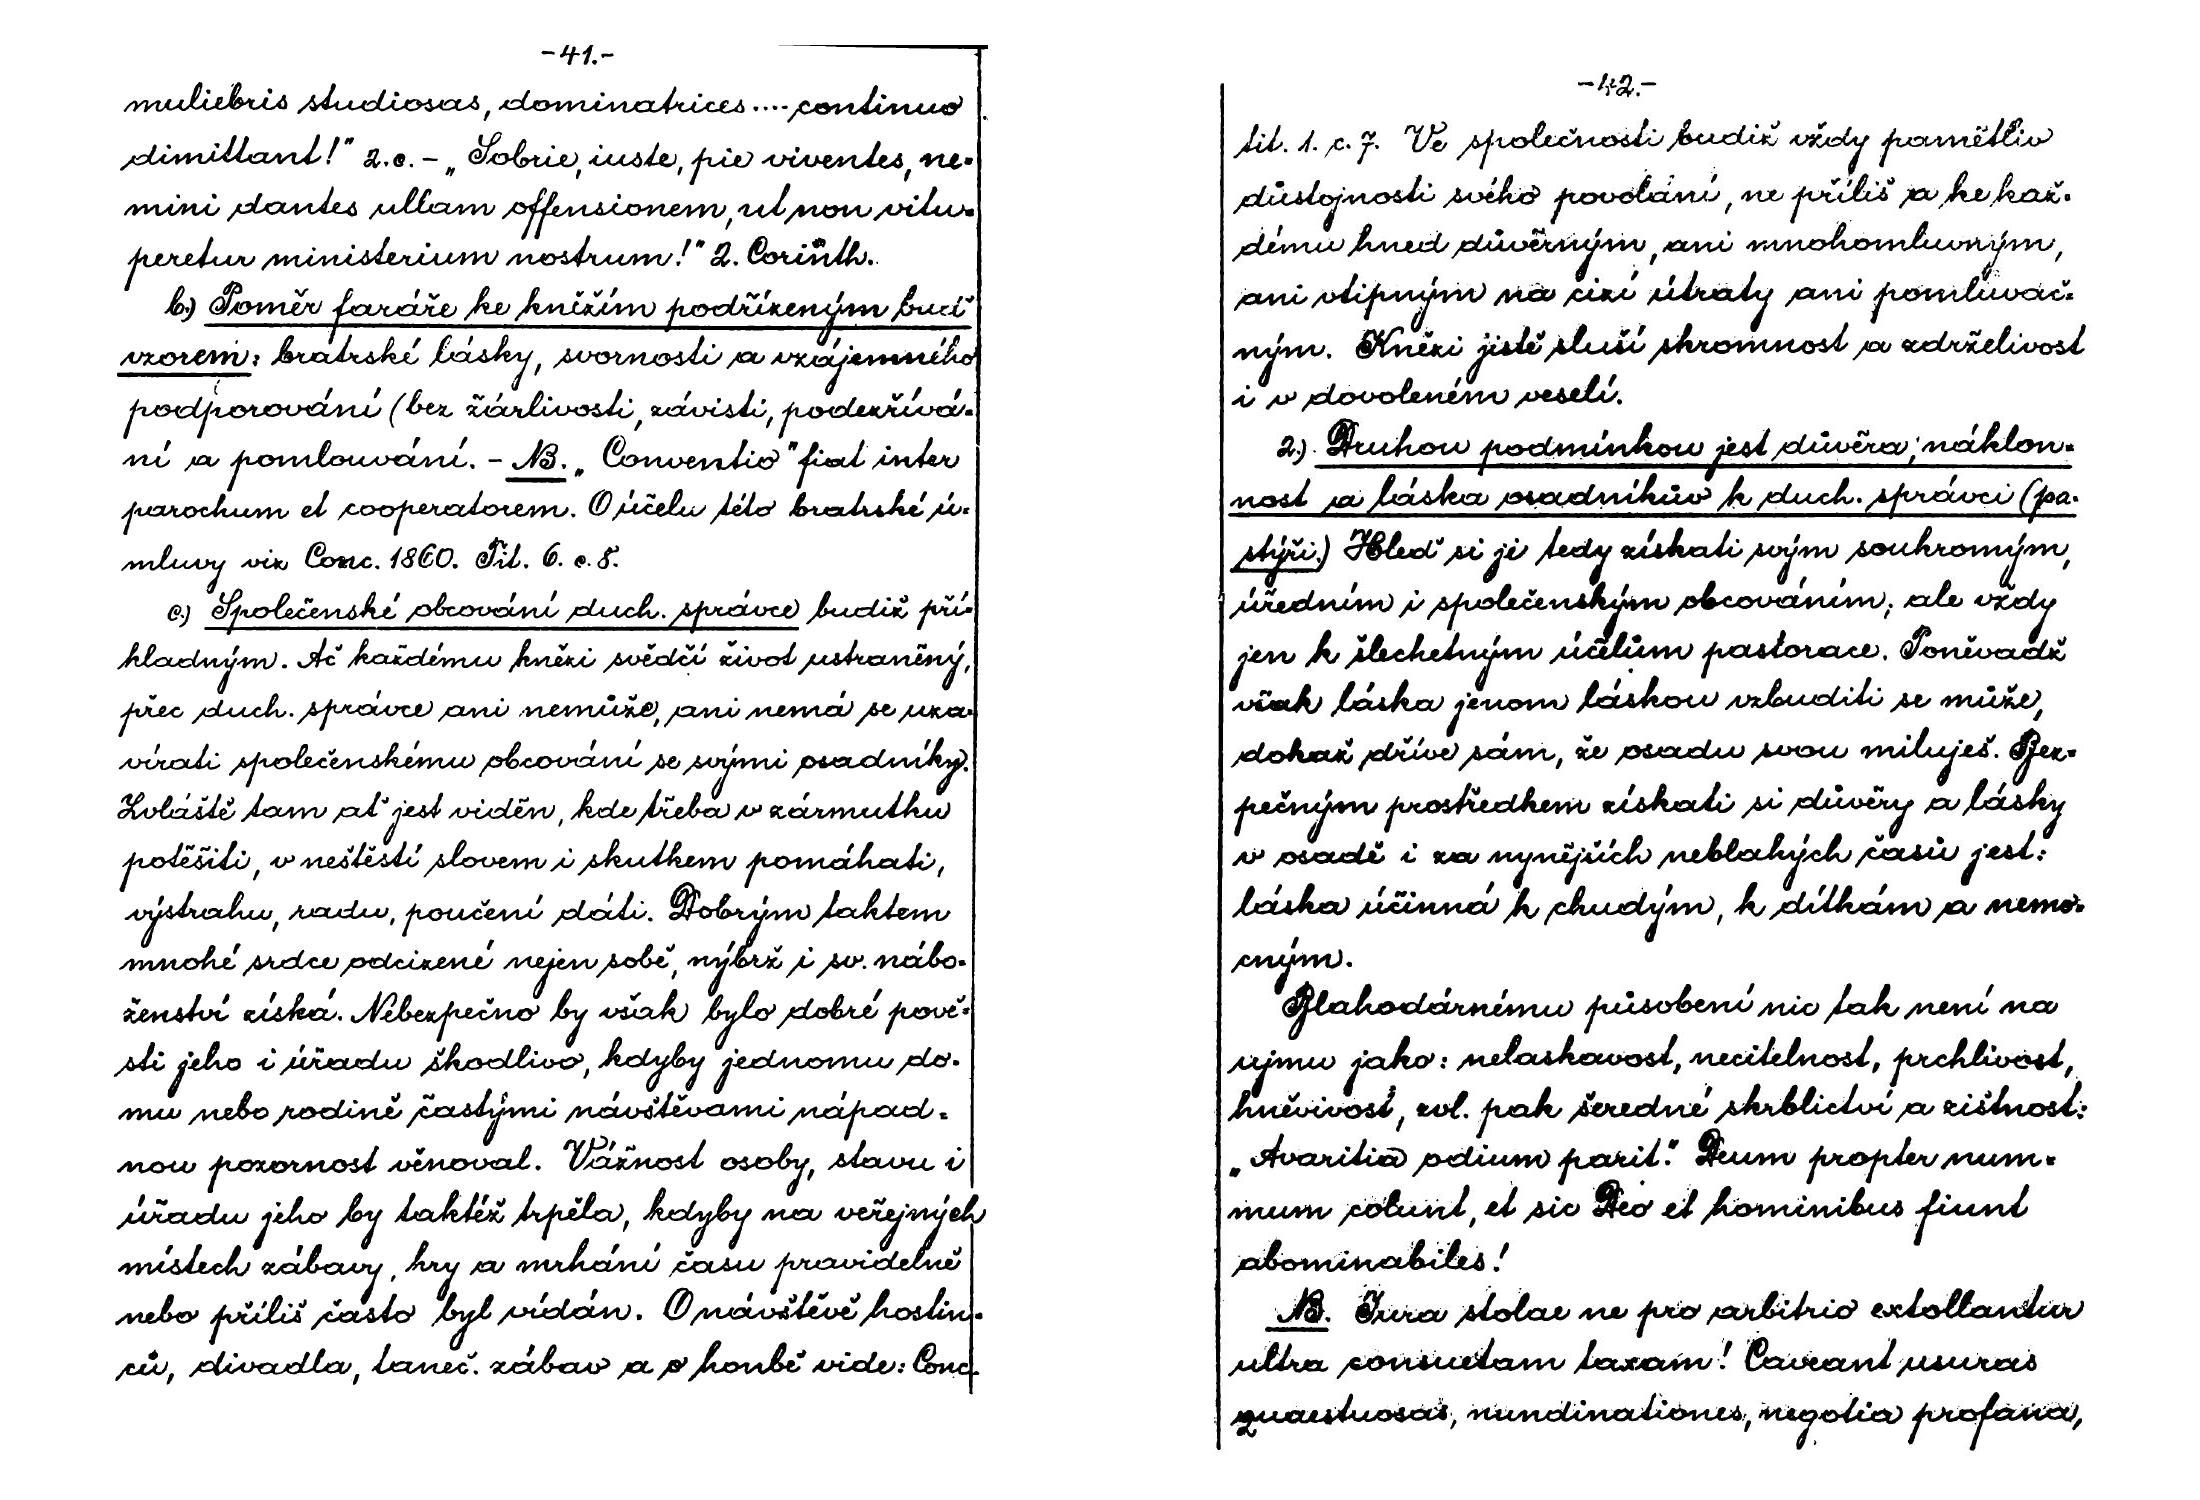 -41.-
muliebris studiosas, dominatrices.... continuo
dimittant!" 2.c. - „Sobrie, iuste, pie viventes, ne=
mini dantes ullam offensionem, ut non vitu=
peretur ministerium nostrum!" 2. Corinth.
b.) Poměr faráře ke kněžím podřízeným buď
vzorem: bratrské lásky, svornosti a vzájemného
podporování (bez žárlivosti, závisti, podezřívá=
ní a pomlouvání. - NB. „Conventio" fiat inter
parochum et cooperatorem. O účelu této bratrské ú=
mluvy viz Conc. 1860. Tit. 6. c. 8.
c.) Společenské obcování duch. správce budiž pří=
kladným. Ač každému knězi svědčí život ustraněný,
přec duch. správce ani nemůže, ani nemá se uza=
vírati společenskému obcování se svými osadníky.
Zvláště tam ať jest viděn, kde třeba v zármutku
potěšiti, v neštěstí slovem i skutkem pomáhati,
výstrahu, radu, poučení dáti. Dobrým taktem
mnohé srdce odcizené nejen sobě, nýbrž i sv. nábo=
ženství získá. Nebezpečno by však bylo dobré pově=
sti jeho i úřadu škodlivo, kdyby jednomu do=
mu nebo rodině častými návštěvami nápad=
nou pozornost věnoval. Vážnost osoby, stavu i
úřadu jeho by taktéž trpěla, kdyby na veřejných
místech zábavy, hry a mrhání času pravidelně
nebo příliš často byl vídán. O návštěvě hostin=
ců, divadla, taneč. zábav a o honbě vide: Conc.
-42.-
tit. 1. c. 7. Ve společnosti budiž vždy pamětliv
důstojnosti svého povolání, ne příliš a ke kaž=
dému hned důvěrným, ani mnohomluvným,
ani vtipným na cizí útraty ani pomluvač=
ným. Knězi jistě sluší skromnost a zdrželivost
i v dovoleném veselí.
2.) Druhou podmínkou jest důvěra, náklon=
nost a láska osadníkův k duch. správci (pa=
stýři.) Hleď si ji tedy získati svým soukromým,
úředním i společenským obcováním, ale vždy
jen k šlechetným účelům pastorace. Poněvadž
však láska jenom láskou vzbuditi se může,
dokaž dříve sám, že osadu svou miluješ. Bez=
pečným prostředkem získati si důvěry a lásky
v osadě i za nynějších neblahých časů jest:
láska účinná k chudým, k dítkám a nemo=
cným.
Blahodárnému působení nic tak není na
ujmu jako: nelaskavost, necitelnost, prchlivost,
hněvivost, zvl. pak šeredné skrblictví a zištnost:
„Avaritia odium parit." Deum propter num=
mum colunt, et sic Deo et hominibus fiunt
abominabiles!
NB. Jura stolae ne pro arbitrio extollantur
ultra consuetam taxam! Caveant usuras
quaestuosas, nundinationes, negotia profana,